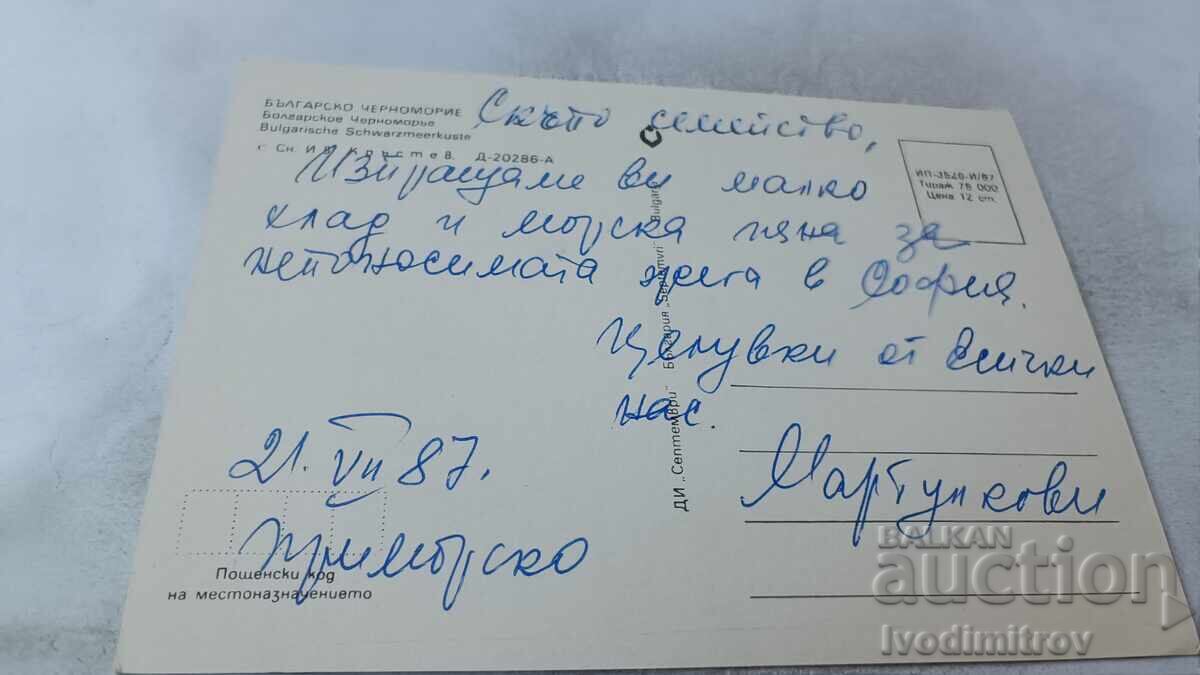 БЪЛГАРСКО ЧЕРНОМОРИЕ
Болгарское Черноморье
Bulgarische Schwarzmeerküste
Сн. Ив. Кръстев. Д-20286-А
ИП-3520-И/87
Тираж 75 000
Цена 12 ст.
Скъпо семейство,
Изпращаме ви малко
хлад и морска пяна за
непоносимата жега в София.
Целувки от всички
нас.
Мартункови
21. VII 87.
Приморско
Пощенски код
на местоназначението
ДИ „Септември" България „Septemvri" Bulgaria
BALKAN
auction
Ivodimitrov